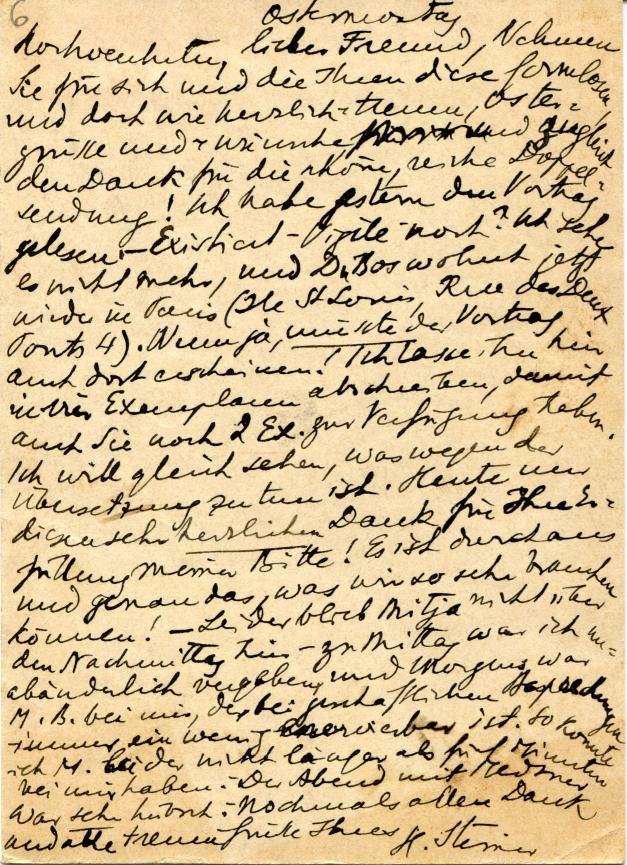 6
Ostermontag
Hochverehrter, lieber Freund, Nehmen
Sie für sich und die Ihren diese formlosen,
und doch wie herzlich-treuen, Oster-
grüsse und -wünsche und zugleich
den Dank für die schöne, reiche Doppel-
sendung! Ich habe gestern den Vortrag
gelesen. – Existiert – Vigile noch? Ich sehe
es nicht mehr, und Du Bos wohnt jetzt
wieder in Paris (Ile St Louis, Rue des Deux
Ponts 4). Wenn ja, müsste der Vortrag
auch dort erscheinen! Ich lasse ihn hier
in Exemplaren abschreiben, damit
auch Sie noch 2 Ex. zur Verfügung haben.
Ich will gleich sehen, was wegen der
Übersetzung zu tun ist. Heute nur
diesen sehr herzlichen Dank für Ihre Er-
füllung meiner Bitte! Es ist durchaus
und genau das, was wir so sehr brauchen
können! – Leider blieb Mitja nicht über
den Nachmittag hier – zu Mittag war ich un-
abänderlich vergeben, und Morgens war
M. B. bei mir, der bei geschäftlichen Besprechungen
immer ein wenig ist. So konnte
ich M. leider nicht länger als fünf Minuten
bei mir haben. – Der Abend mit Medtner
war sehr hübsch. – Nochmals allen Dank
und alle treuen Grüsse Ihres H. Steiner